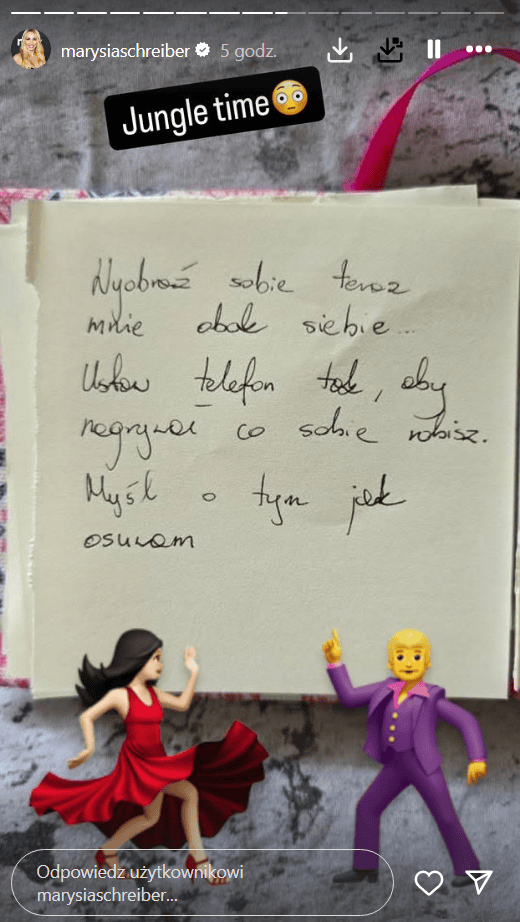 marysiaschreiber 5 godz.
Jungle time😳
Wyobraź sobie teraz
mnie obok siebie...
Ustaw telefon tak, aby
nagrywać co sobie robisz.
Myśl o tym jak
osuwam
Odpowiedz użytkownikowi
marysiaschreiber...